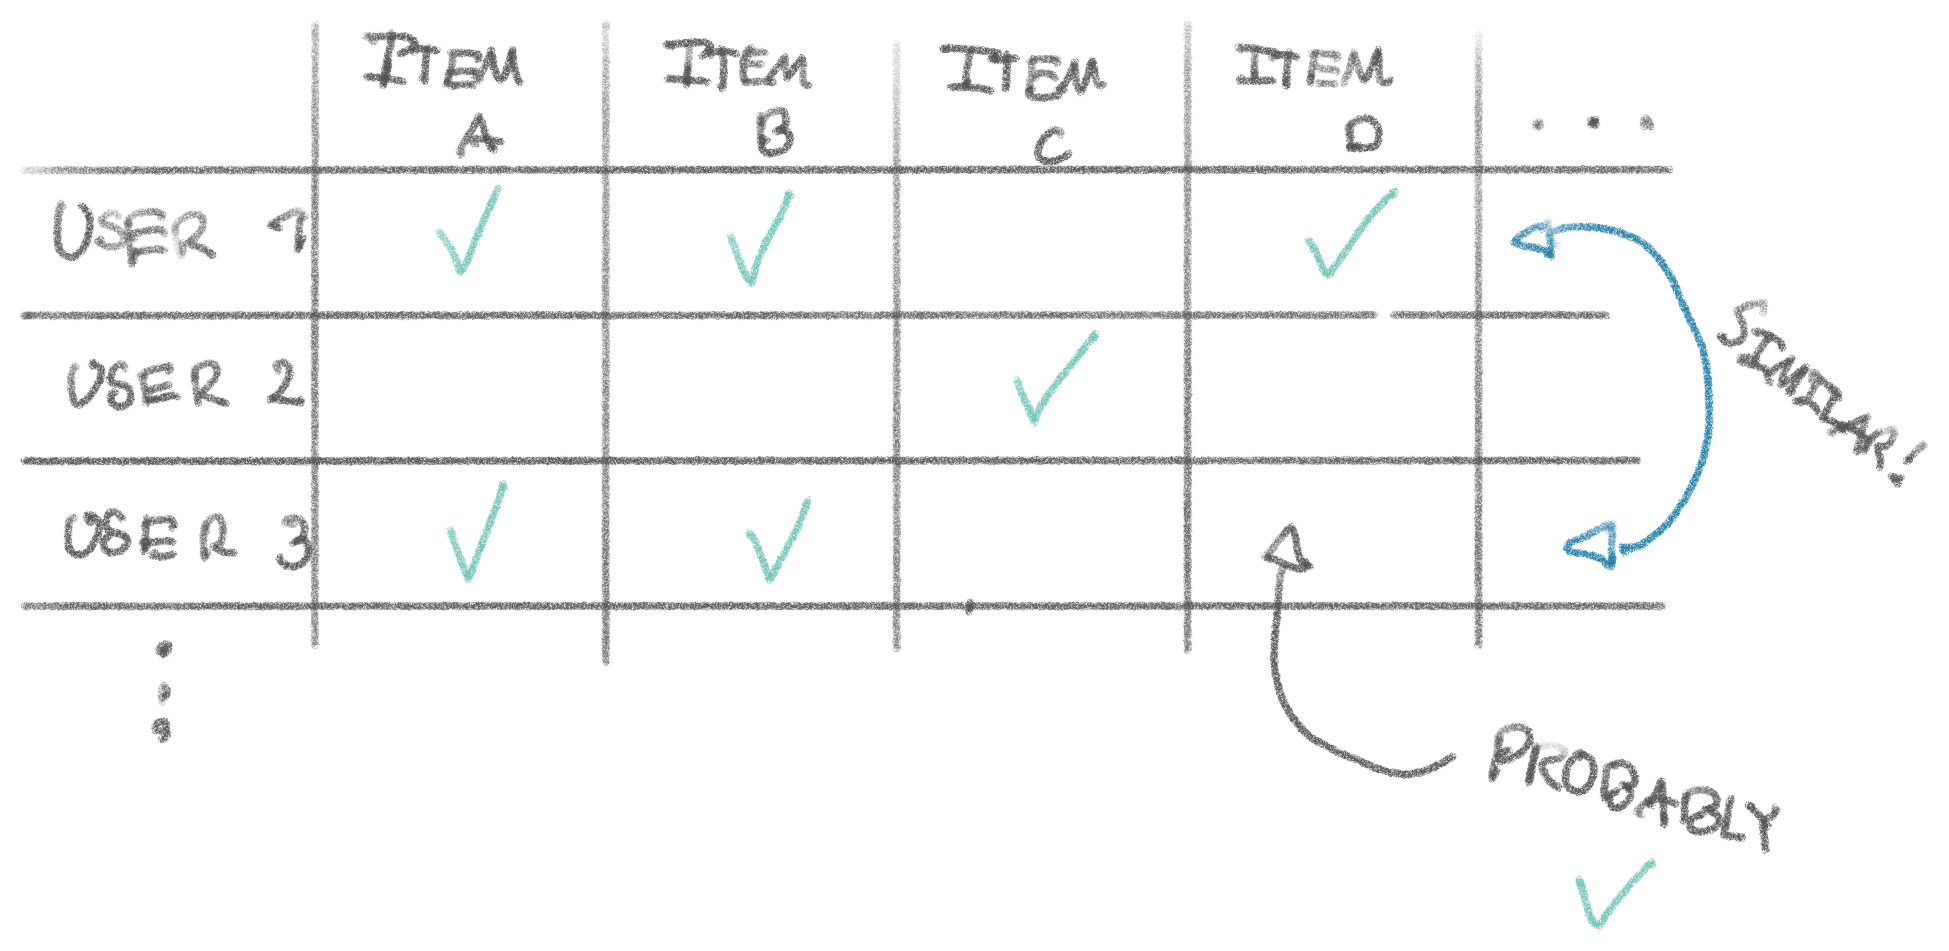 ITEM A
ITEM B
ITEM C
ITEM D
...
USER 1 ✓ ✓ ✓
USER 2 ✓
USER 3 ✓ ✓
SIMILAR!
PROBABLY
✓